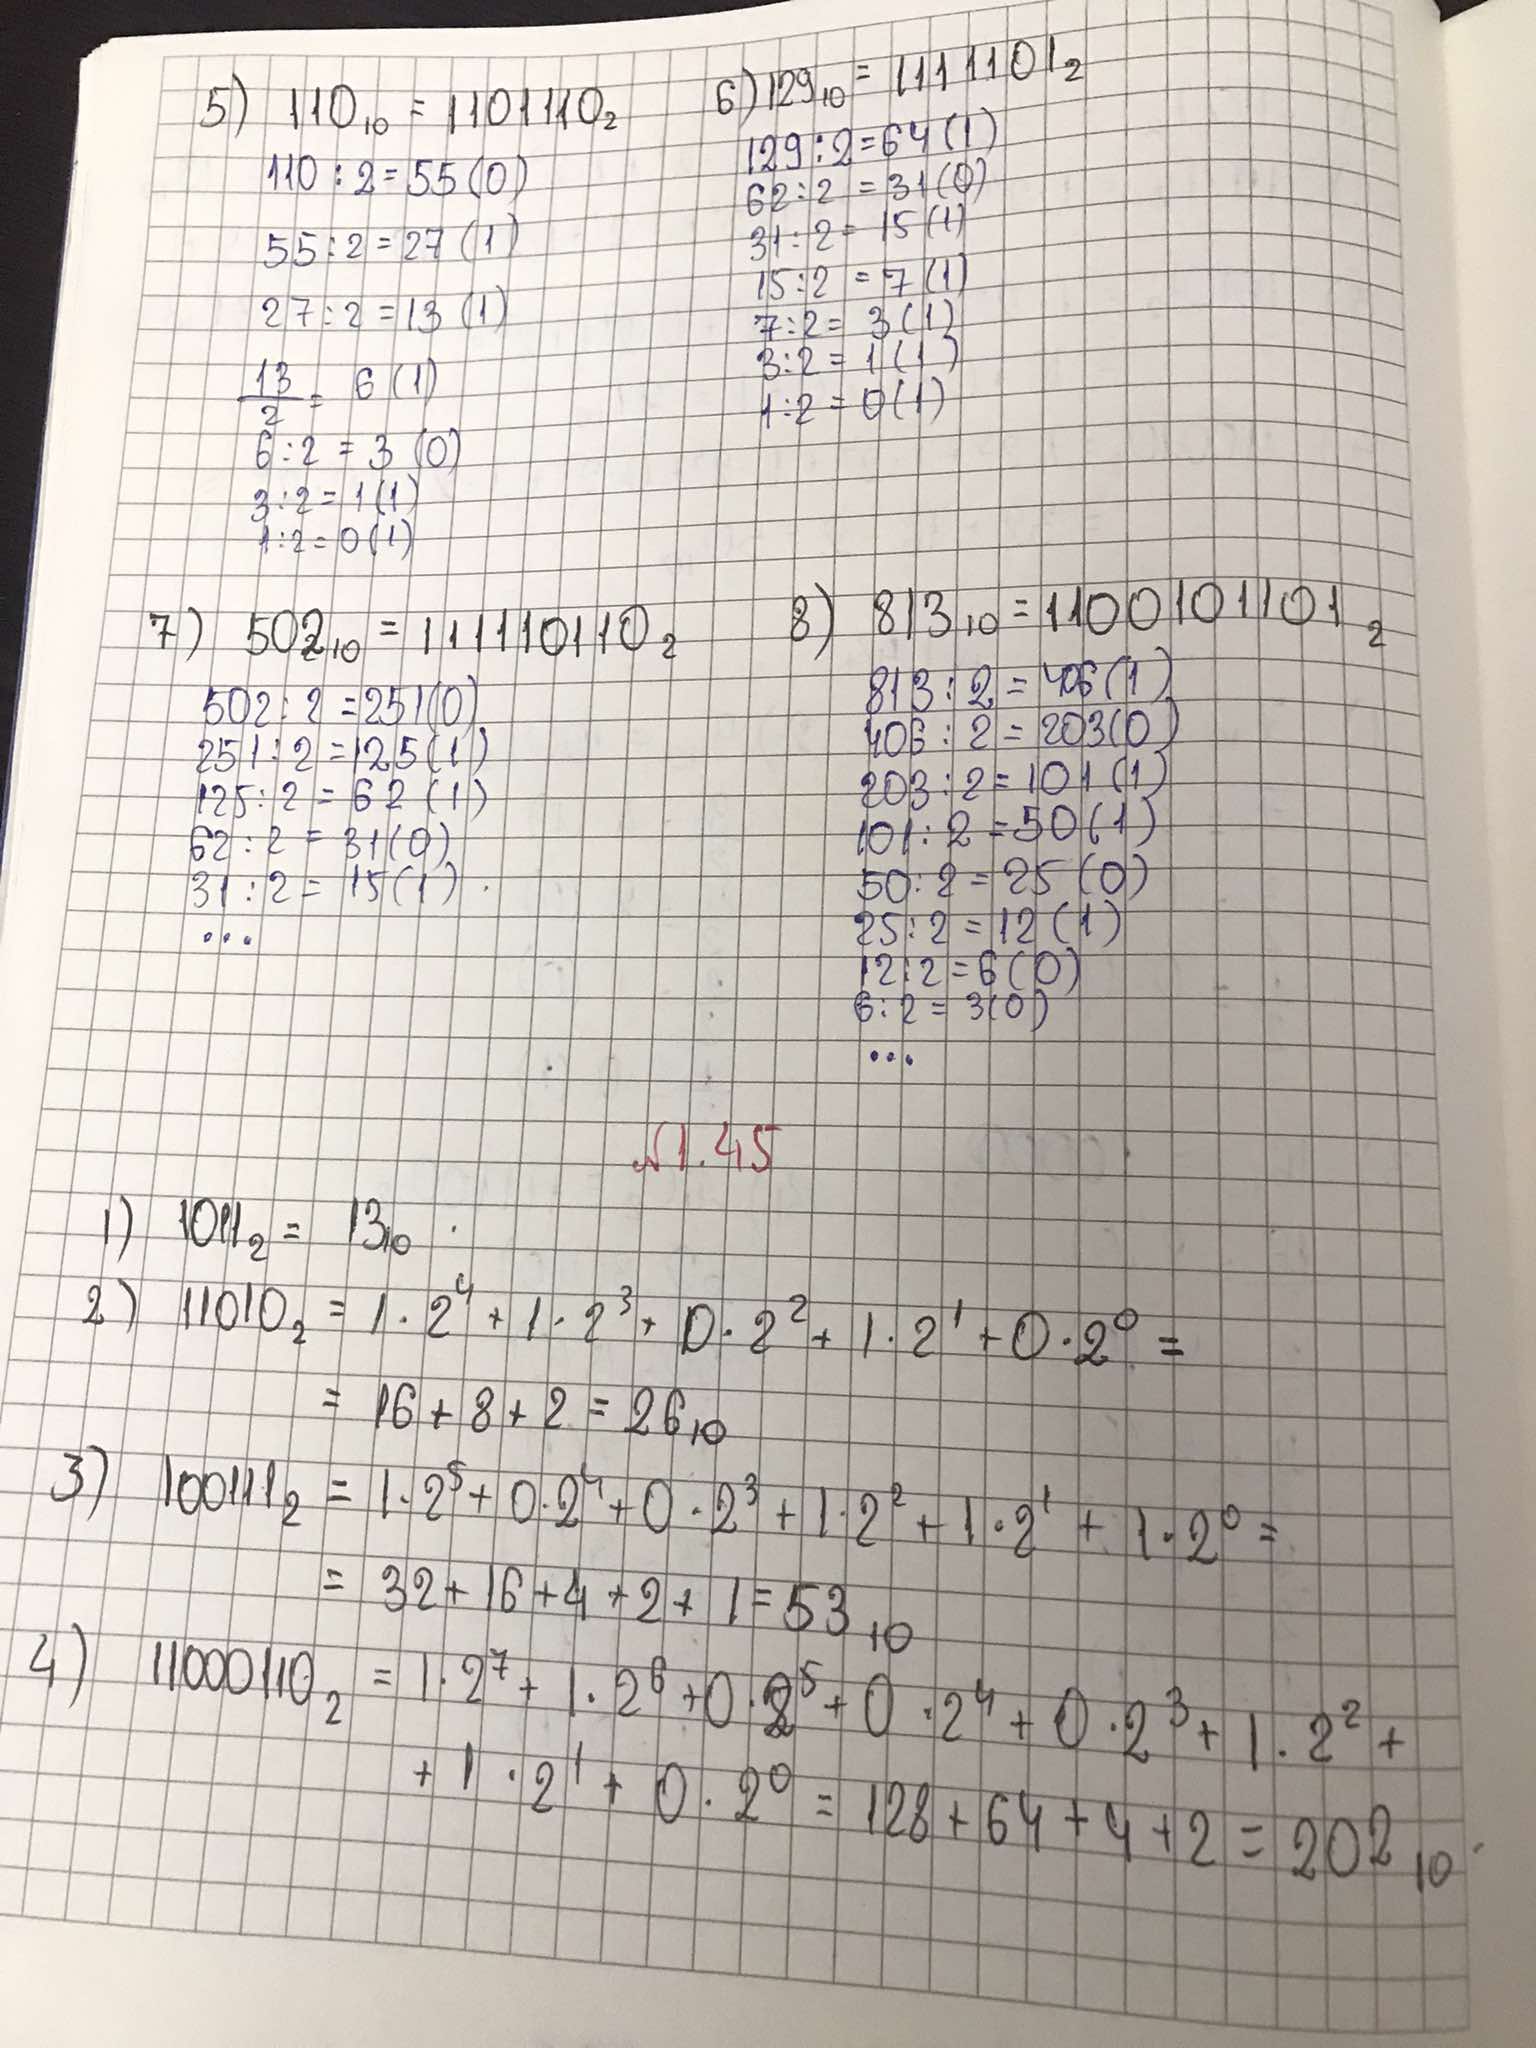 5) 110₁₀ = 1101110₂
110 : 2 = 55 (0)
55 : 2 = 27 (1)
27 : 2 = 13 (1)
13/2 = 6 (1)
6 : 2 = 3 (0)
3 : 2 = 1 (1)
1 : 2 = 0 (1)
6) 129₁₀ = 1111101₂
129 : 2 = 64 (1)
62 : 2 = 31 (0)
31 : 2 = 15 (1)
15 : 2 = 7 (1)
7 : 2 = 3 (1)
3 : 2 = 1 (1)
1 : 2 = 0 (1)
7) 502₁₀ = 111110110₂
502 : 2 = 251 (0)
251 : 2 = 125 (1)
125 : 2 = 62 (1)
62 : 2 = 31 (0)
31 : 2 = 15 (1)
...
8) 813₁₀ = 1100101101₂
813 : 2 = 406 (1)
406 : 2 = 203 (0)
203 : 2 = 101 (1)
101 : 2 = 50 (1)
50 : 2 = 25 (0)
25 : 2 = 12 (1)
12 : 2 = 6 (0)
6 : 2 = 3 (0)
...
№1.45
1) 1011₂ = 13₁₀
2) 11010₂ = 1·2⁴ + 1·2³ + 0·2² + 1·2¹ + 0·2⁰ =
= 16 + 8 + 2 = 26₁₀
3) 100111₂ = 1·2⁵ + 0·2⁴ + 0·2³ + 1·2² + 1·2¹ + 1·2⁰ =
= 32 + 16 + 4 + 2 + 1 = 53₁₀
4) 11000110₂ = 1·2⁷ + 1·2⁶ + 0·2⁵ + 0·2⁴ + 0·2³ + 1·2² +
+ 1·2¹ + 0·2⁰ = 128 + 64 + 4 + 2 = 202₁₀